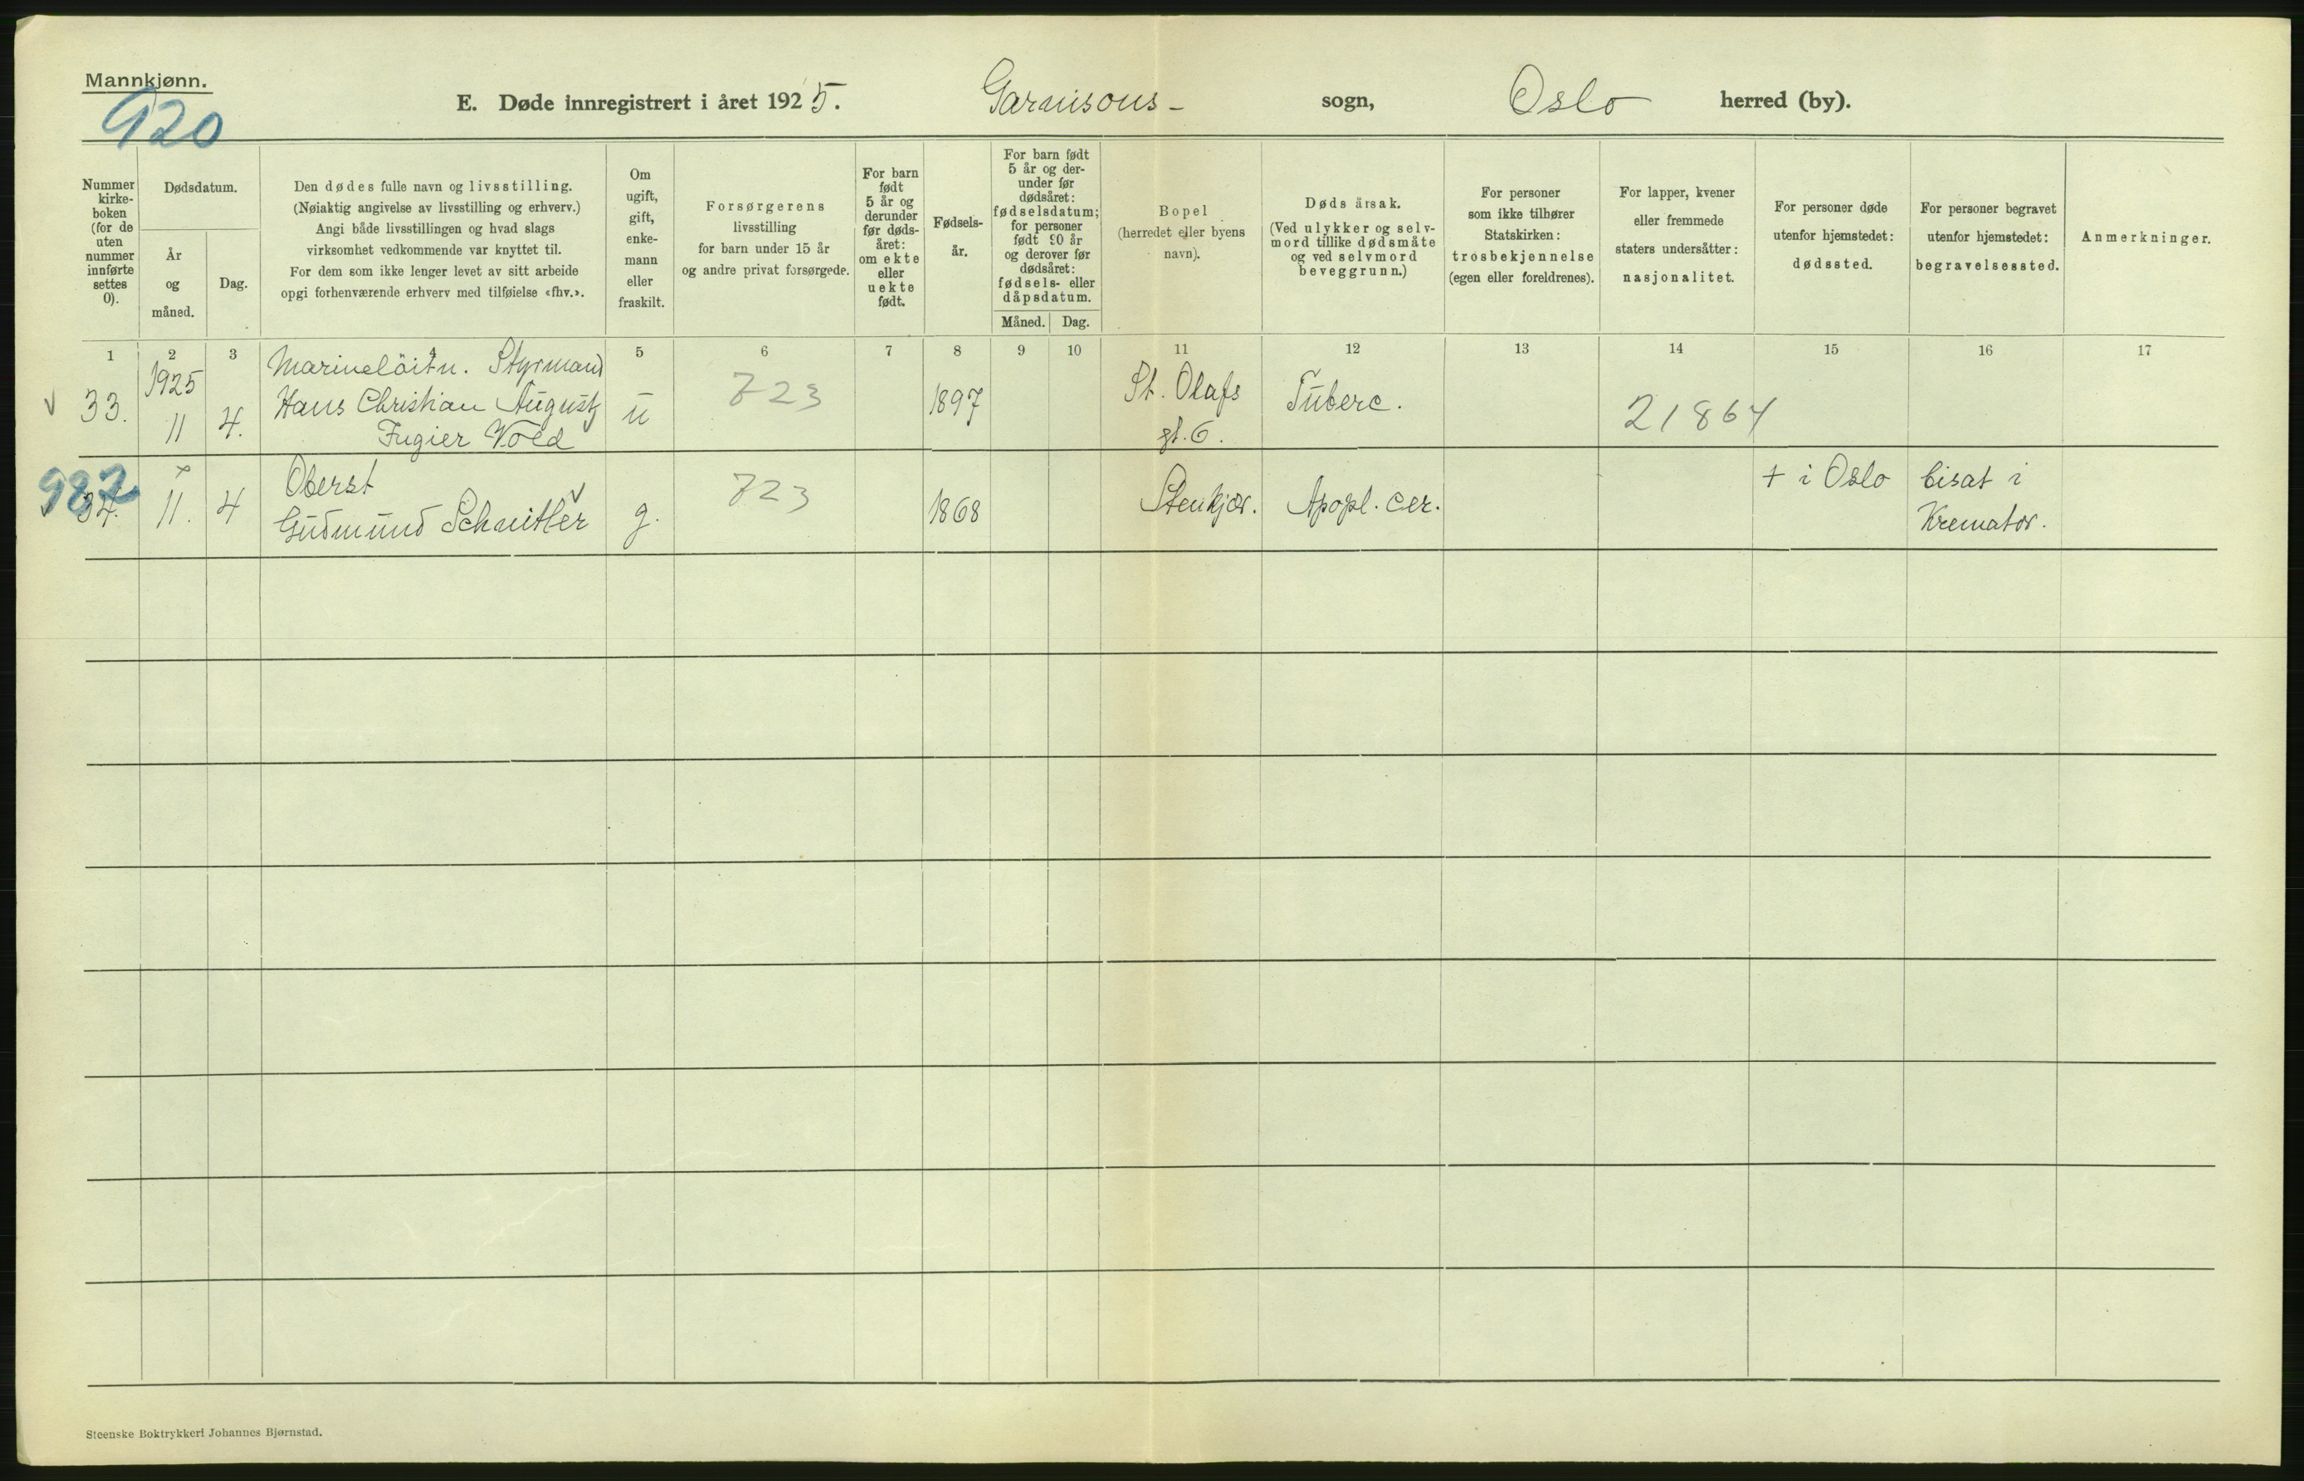 Mannkjønn.
920
E. Døde innregistrert i året 1925. Garnisons- sogn, Oslo herred (by).
Nummer
kirke-
boken
(for de
uten
nummer
innførte
settes
0).
Dødsdatum.
År
og
måned.
Dag.
Den dødes fulle navn og livsstilling.
(Nøiaktig angivelse av livsstilling og erhverv.)
Angi både livsstillingen og hvad slags
virksomhet vedkommende var knyttet til.
For dem som ikke lenger levet av sitt arbeide
opgi forhenværende erhverv med tilføielse «fhv.».
Om
ugift,
gift,
enke-
mann
eller
fraskilt.
Forsørgerens
livsstilling
for barn under 15 år
og andre privat forsørgede.
For barn
født
5 år og
derunder
før døds-
året:
om ekte
eller
uekte
født.
Fødsels-
år.
For barn født
5 år og der-
under før
dødsåret:
fødselsdatum;
for personer
født 90 år
og derover før
dødsåret:
fødsels- eller
dåpsdatum.
Måned. Dag.
Bopel
(herredet eller byens
navn).
Dødsårsak.
(Ved ulykker og selv-
mord tillike dødsmåte
og ved selvmord
beveggrunn.)
For personer
som ikke tilhører
Statskirken:
trosbekjennelse
(egen eller foreldrenes).
For lapper, kvener
eller fremmede
staters undersåtter:
nasjonalitet.
For personer døde
utenfor hjemstedet:
dødssted.
For personer begravet
utenfor hjemstedet:
begravelsessted.
Anmerkninger.
1 2 3 4 5 6 7 8 9 10 11 12 13 14 15 16 17
33.
1925
11
4.
Marinelöitn. Styrmand
Hans Christian August
Fugier Vold
u
723
1897
St. Olafs
gt. 6.
Tuberc.
21864
987
34.
11.
4
Oberst
Gudmund Schnitler
g.
723
1868
Stenkjær.
Apopl. cer.
+ i Oslo
bisat i
Kremator.
Steenske Boktrykkeri Johannes Bjørnstad.